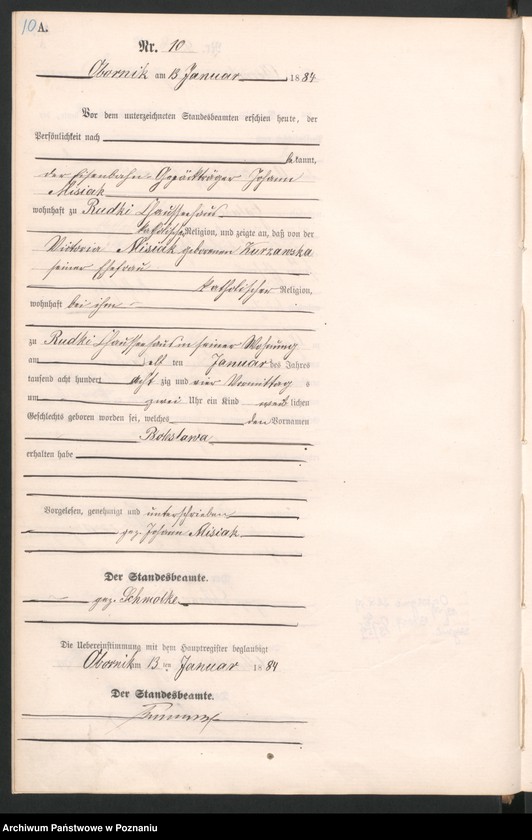 10 A.
Nr. 10
Obornik am 13 Januar 1884
Vor dem unterzeichneten Standesbeamten erschien heute, der
Persönlichkeit nach
bekannt,
der Eisenbahn-Gepäckträger Johann
Misiak
wohnhaft zu Rudki Chausseehaus
katholischer Religion, und zeigte an, daß von der
Victoria Misiak geborenen Kurzawska
seiner Ehefrau
katholischer Religion,
wohnhaft bei ihm
zu Rudki Chausseehaus in seiner Wohnung
am elften Januar des Jahres
tausend acht hundert achtzig und vier Vormittag s
um zwei Uhr ein Kind weiblichen
Geschlechts geboren worden sei, welches den Vornamen
Boleslawa
erhalten habe
Vorgelesen, genehmigt und unterschrieben
gez. Johann Misiak
Der Standesbeamte.
gez. Schmolke
Die Uebereinstimmung mit dem Hauptregister beglaubigt
Obornik am 13 ten Januar 1884
Der Standesbeamte.
Archiwum Państwowe w Poznaniu